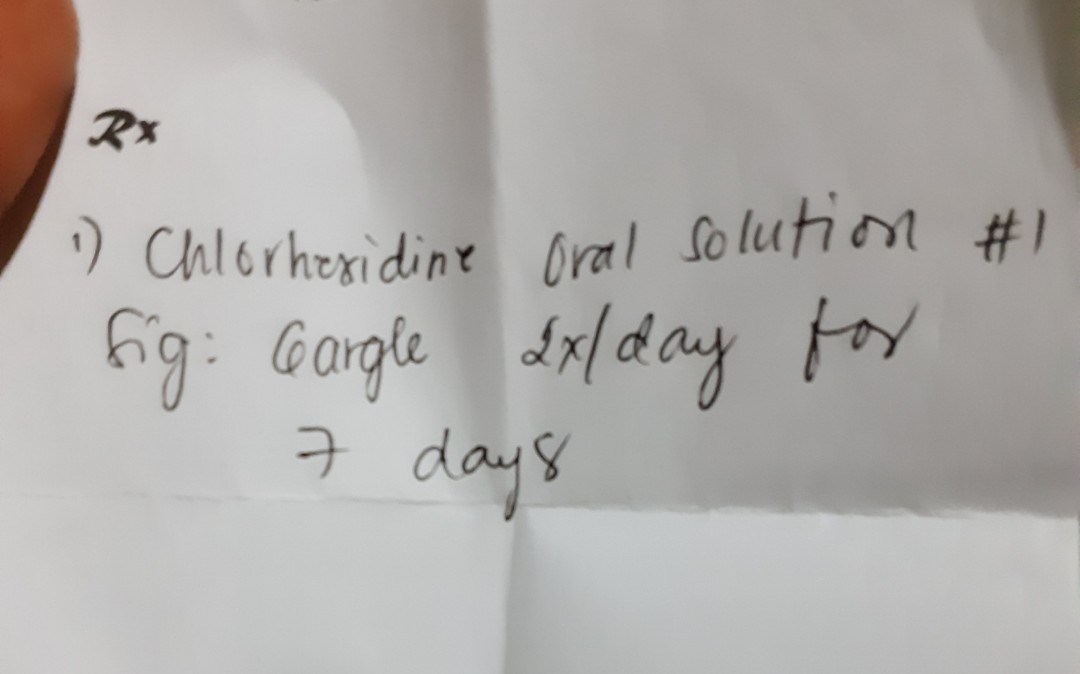 Rx
1) Chlorhexidine Oral Solution #1
Sig: Gargle 2x/day for
7 days